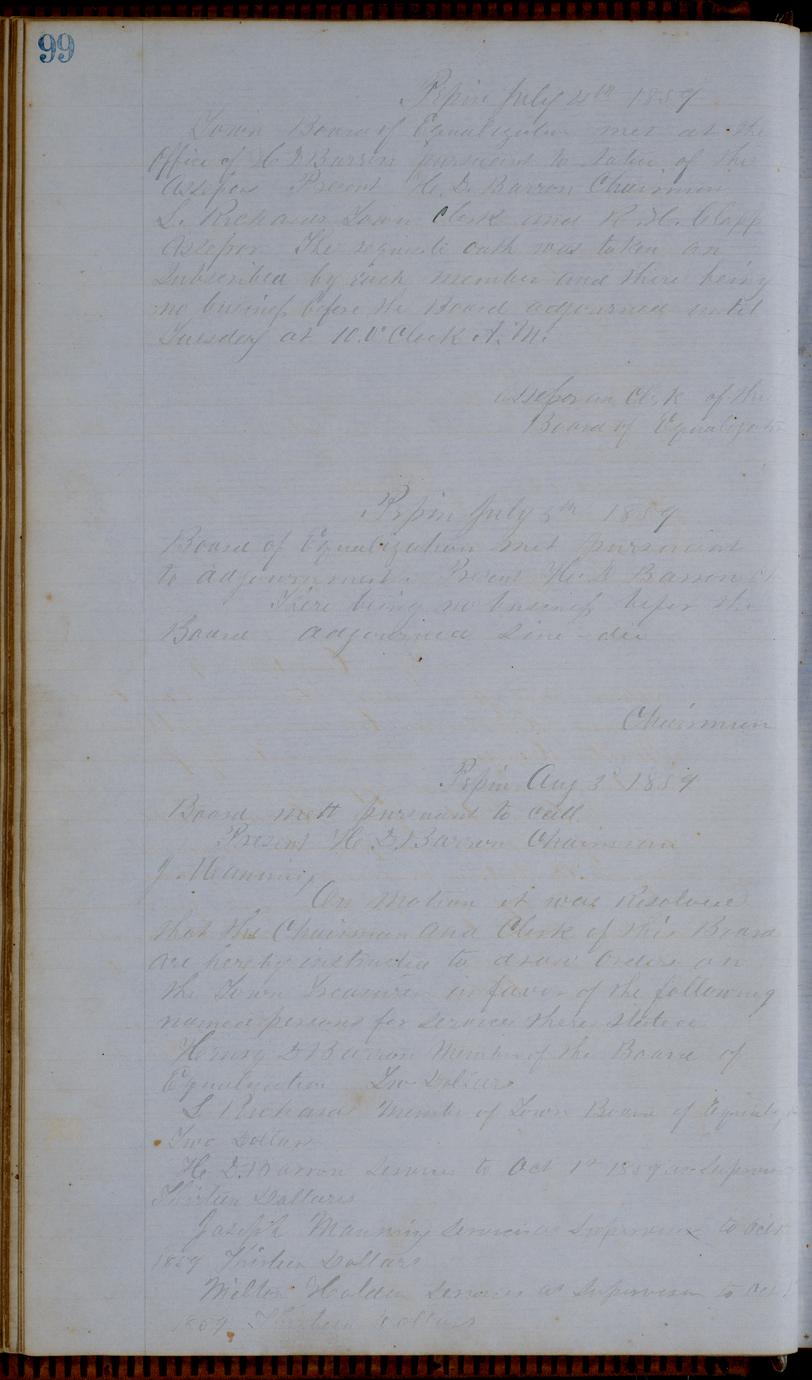 99
Pepin July 4th 1859
Town Board of Equalization met at the
Office of H D Barron pursuant to notice of the
Assessor Present H. D. Barron Chairman
L. Richards Town Clerk and Clapp
Assessor The requisite oath was taken an
Subscribed by each member and there being
no business before the Board adjourned until
Tuesday at 10. O Clock A. M.
Clerk of the
Board of Equalizati
Pepin July 5th 1859
Board of Equalization met pursuant
to adjournment. Present H. D Barron
There being no business befor the
Board adjourned Sine-die
Chairman
Pepin Aug 3d 1859
Board mett pursuant to call
Present H D Barron Chairman
J Manning
On motion it was Resolved
that the Chairman and Clerk of this Board
are hereby instructed to draw Orders on
the Town Treasurer in favor of the following
named persons for services there stated
Henry D Barron Member of the Board of
Equalization Two Dollars
L Richards Member of Town Board of
Two Dollars
H D Barron Services to Oct 1st 1859 as
Thirteen Dollars
Joseph Manning Services as Supervisor to Oct
1859 Thirteen Dollars
Milton Holden Services as Supervisor to Oct
1859 Thirteen Dollars